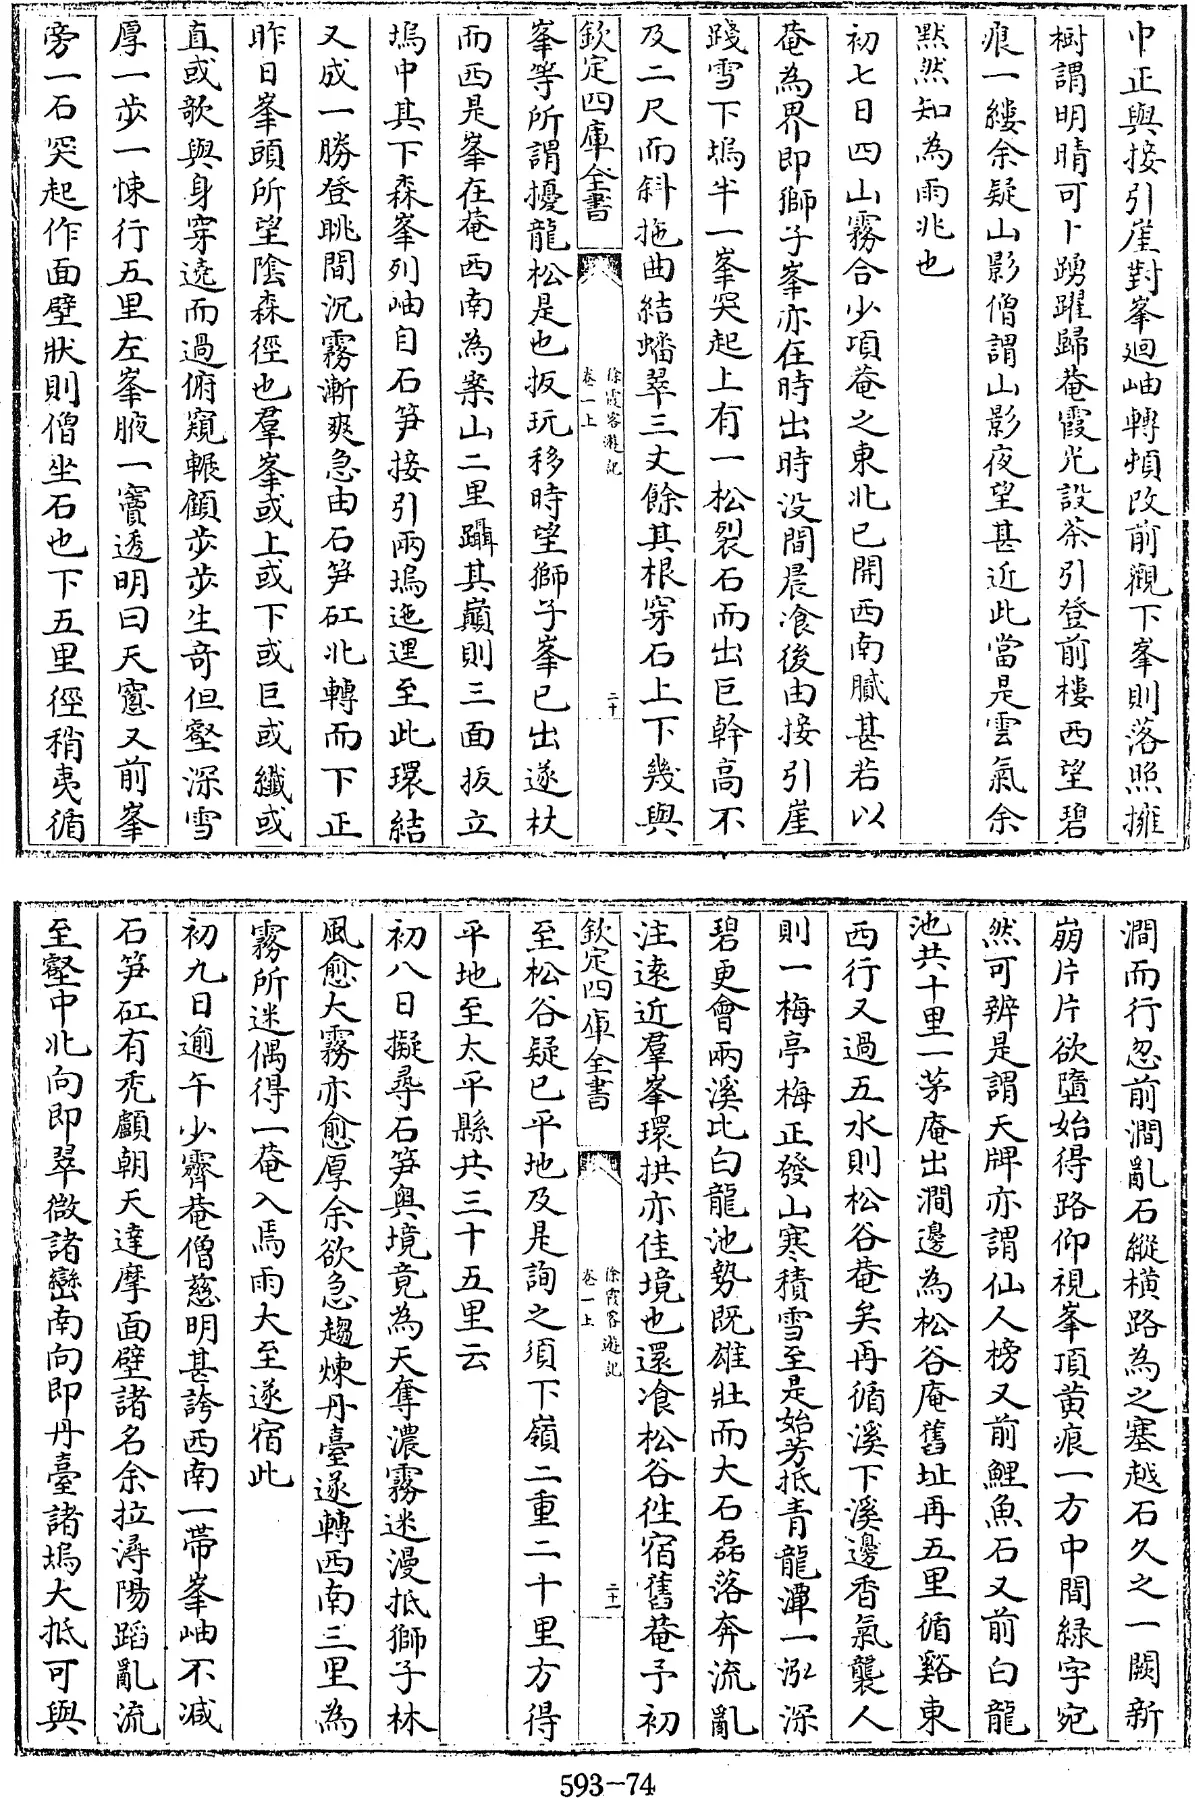 中正與接引崖對峯迴岫轉頓改前觀下峯則落照擁
樹謂明晴可卜踴躍歸菴霞光設茶引登前樓西望碧
痕一縷余疑山影僧謂山影夜望甚近此當是雲氣余
黙然知為雨兆也
初七日四山霧合少項菴之東北已開西南膩甚若以
菴為界即獅子峯亦在時出時没間晨飡後由接引崖
踐雪下塢半一峯突起上有一松裂石而出巨幹高不
及二尺而斜拖曲結蟠翠三丈餘其根穿石上下幾與
欽定四庫全書
徐霞客遊記
卷一上
二十
峯等所謂擾龍松是也扳玩移時望獅子峯已出遂杖
而西是峯在菴西南為案山二里躡其巔則三面拔立
塢中其下森峯列岫自石笋接引兩塢迤邐至此環結
又成一勝登眺間沉霧漸爽急由石笋矼北轉而下正
昨日峯頭所望陰森徑也羣峯或上或下或巨或纖或
直或欹與身穿遶而過俯窺輾顧步步生竒但壑深雪
厚一步一悚行五里左峯腋一竇透明曰天窻又前峯
旁一石突起作面壁狀則僧坐石也下五里徑稍夷循
澗而行忽前澗亂石縱横路為之塞越石久之一闕新
崩片片欲墮始得路仰視峯頂黄痕一方中間緑字宛
然可辨是謂天牌亦謂仙人榜又前鯉魚石又前白龍
池共十里一茅庵出澗邊為松谷庵舊址再五里循谿東
西行又過五水則松谷菴矣再循溪下溪邊香氣襲人
則一梅亭梅正發山寒積雪至是始芳抵青龍潭一泓深
碧更會兩溪比白龍池勢既雄壯而大石磊落奔流亂
注遠近羣峯環拱亦佳境也還飡松谷徃宿舊菴予初
欽定四庫全書
徐霞客遊記
卷一上
二十一
至松谷疑已平地及是詢之須下嶺二重二十里方得
平地至太平縣共三十五里云
初八日擬尋石笋奥境竟為天奪濃霧迷漫抵獅子林
風愈大霧亦愈厚余欲急趨煉丹臺遂轉西南三里為
霧所迷偶得一菴入焉雨大至遂宿此
初九日逾午少霽菴僧慈明甚誇西南一帶峯岫不减
石笋矼有秃顱朝天達摩面壁諸名余拉潯陽蹈亂流
至壑中北向即翠微諸巒南向即丹臺諸塢大抵可與
593-74